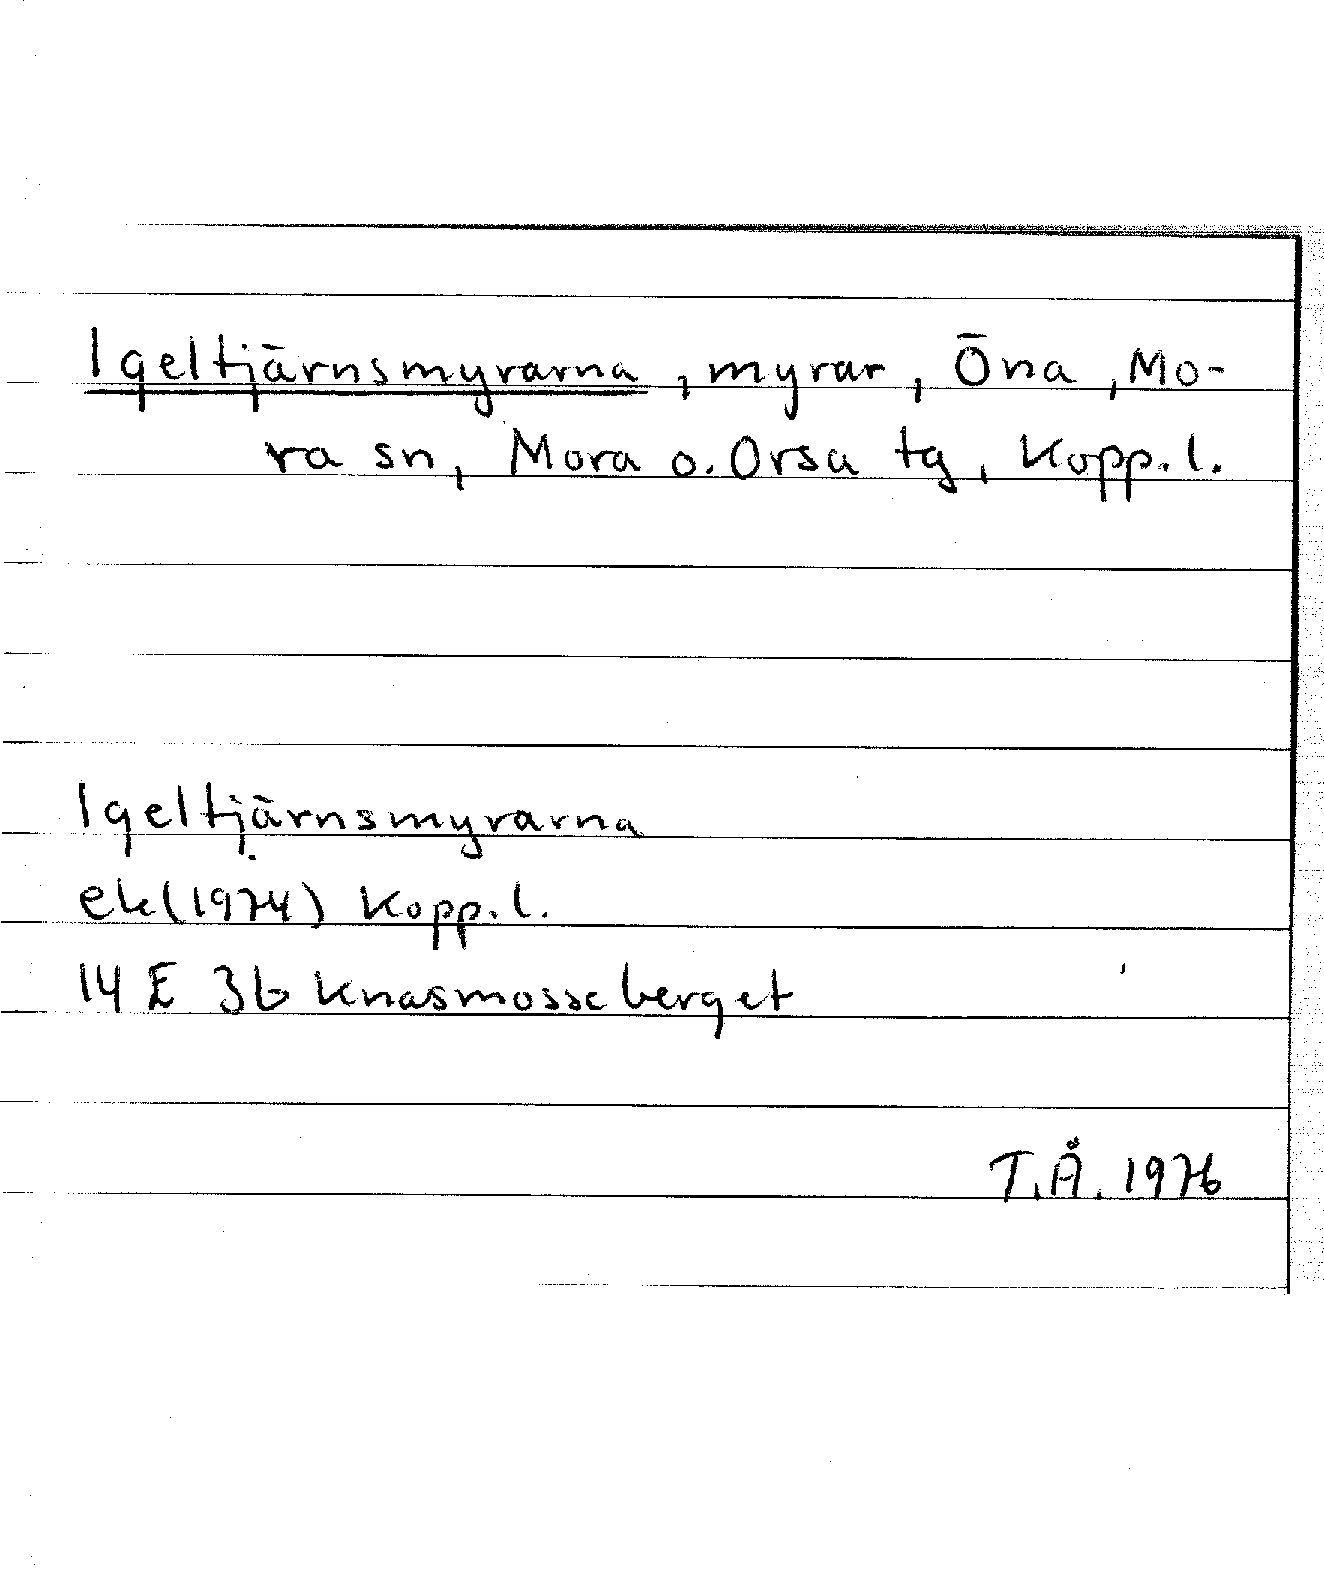 Igeltjärnsmyrarna, myrar, Öna, Mo-
ra sn, Mora o. Orsa tg, Kopp. l.
Igeltjärnsmyrarna
ek (1974) Kopp. l.
14 E 3b Knasmosseberget
T.Å. 1976